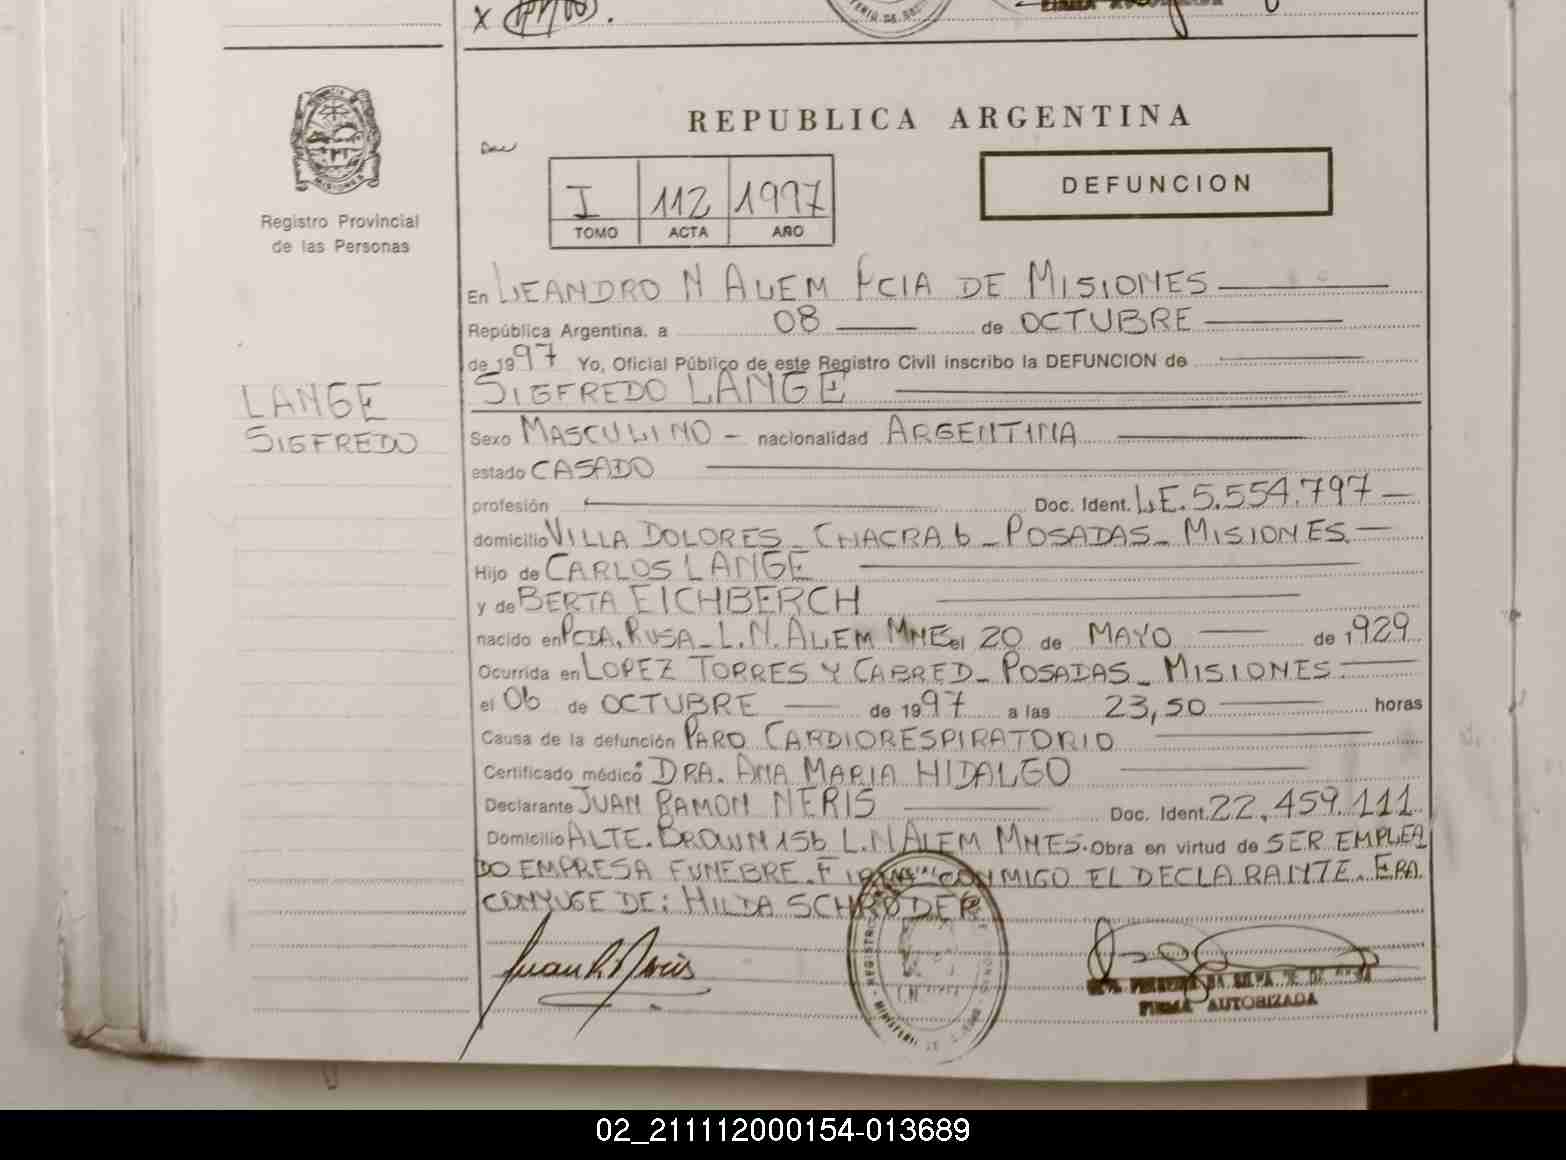 REPUBLICA ARGENTINA
I 112 1997
TOMO ACTA AÑO
DEFUNCION
MISIONES
Registro Provincial
de las Personas
LANGE
SIGFREDO
En LEANDRO N ALEM PCIA DE MISIONES
República Argentina. a 08 de OCTUBRE
de 1997 Yo, Oficial Público de este Registro Civil inscribo la DEFUNCION de
SIGFREDO LANGE
Sexo MASCULINO - nacionalidad ARGENTINA
estado CASADO
profesión Doc. Ident. L.E. 5.554.797 -
domicilio VILLA DOLORES - CHACRA 6 - POSADAS - MISIONES. -
Hijo de CARLOS LANGE
y de BERTA EICHBERCH
nacido en PCIA. RUSA - L.N. ALEM MNES el 20 de MAYO de 1929
Ocurrida en LOPEZ TORRES Y CABRED - POSADAS - MISIONES
el 06 de OCTUBRE de 1997 a las 23,50 horas
Causa de la defunción PARO CARDIORESPIRATORIO
Certificado médico DRA. ANA MARIA HIDALGO
Declarante JUAN RAMON NERIS Doc. Ident. 22.459.111
Domicilio ALTE. BROWN 156 L.N ALEM MNES. Obra en virtud de SER EMPLEA
DO EMPRESA FUNEBRE. FIRMA CONMIGO EL DECLARANTE. ERA
CONYUGE DE: HILDA SCHRODER
Juan R. Neris
DA SILVA
FIRMA AUTORIZADA
02_211112000154-013689